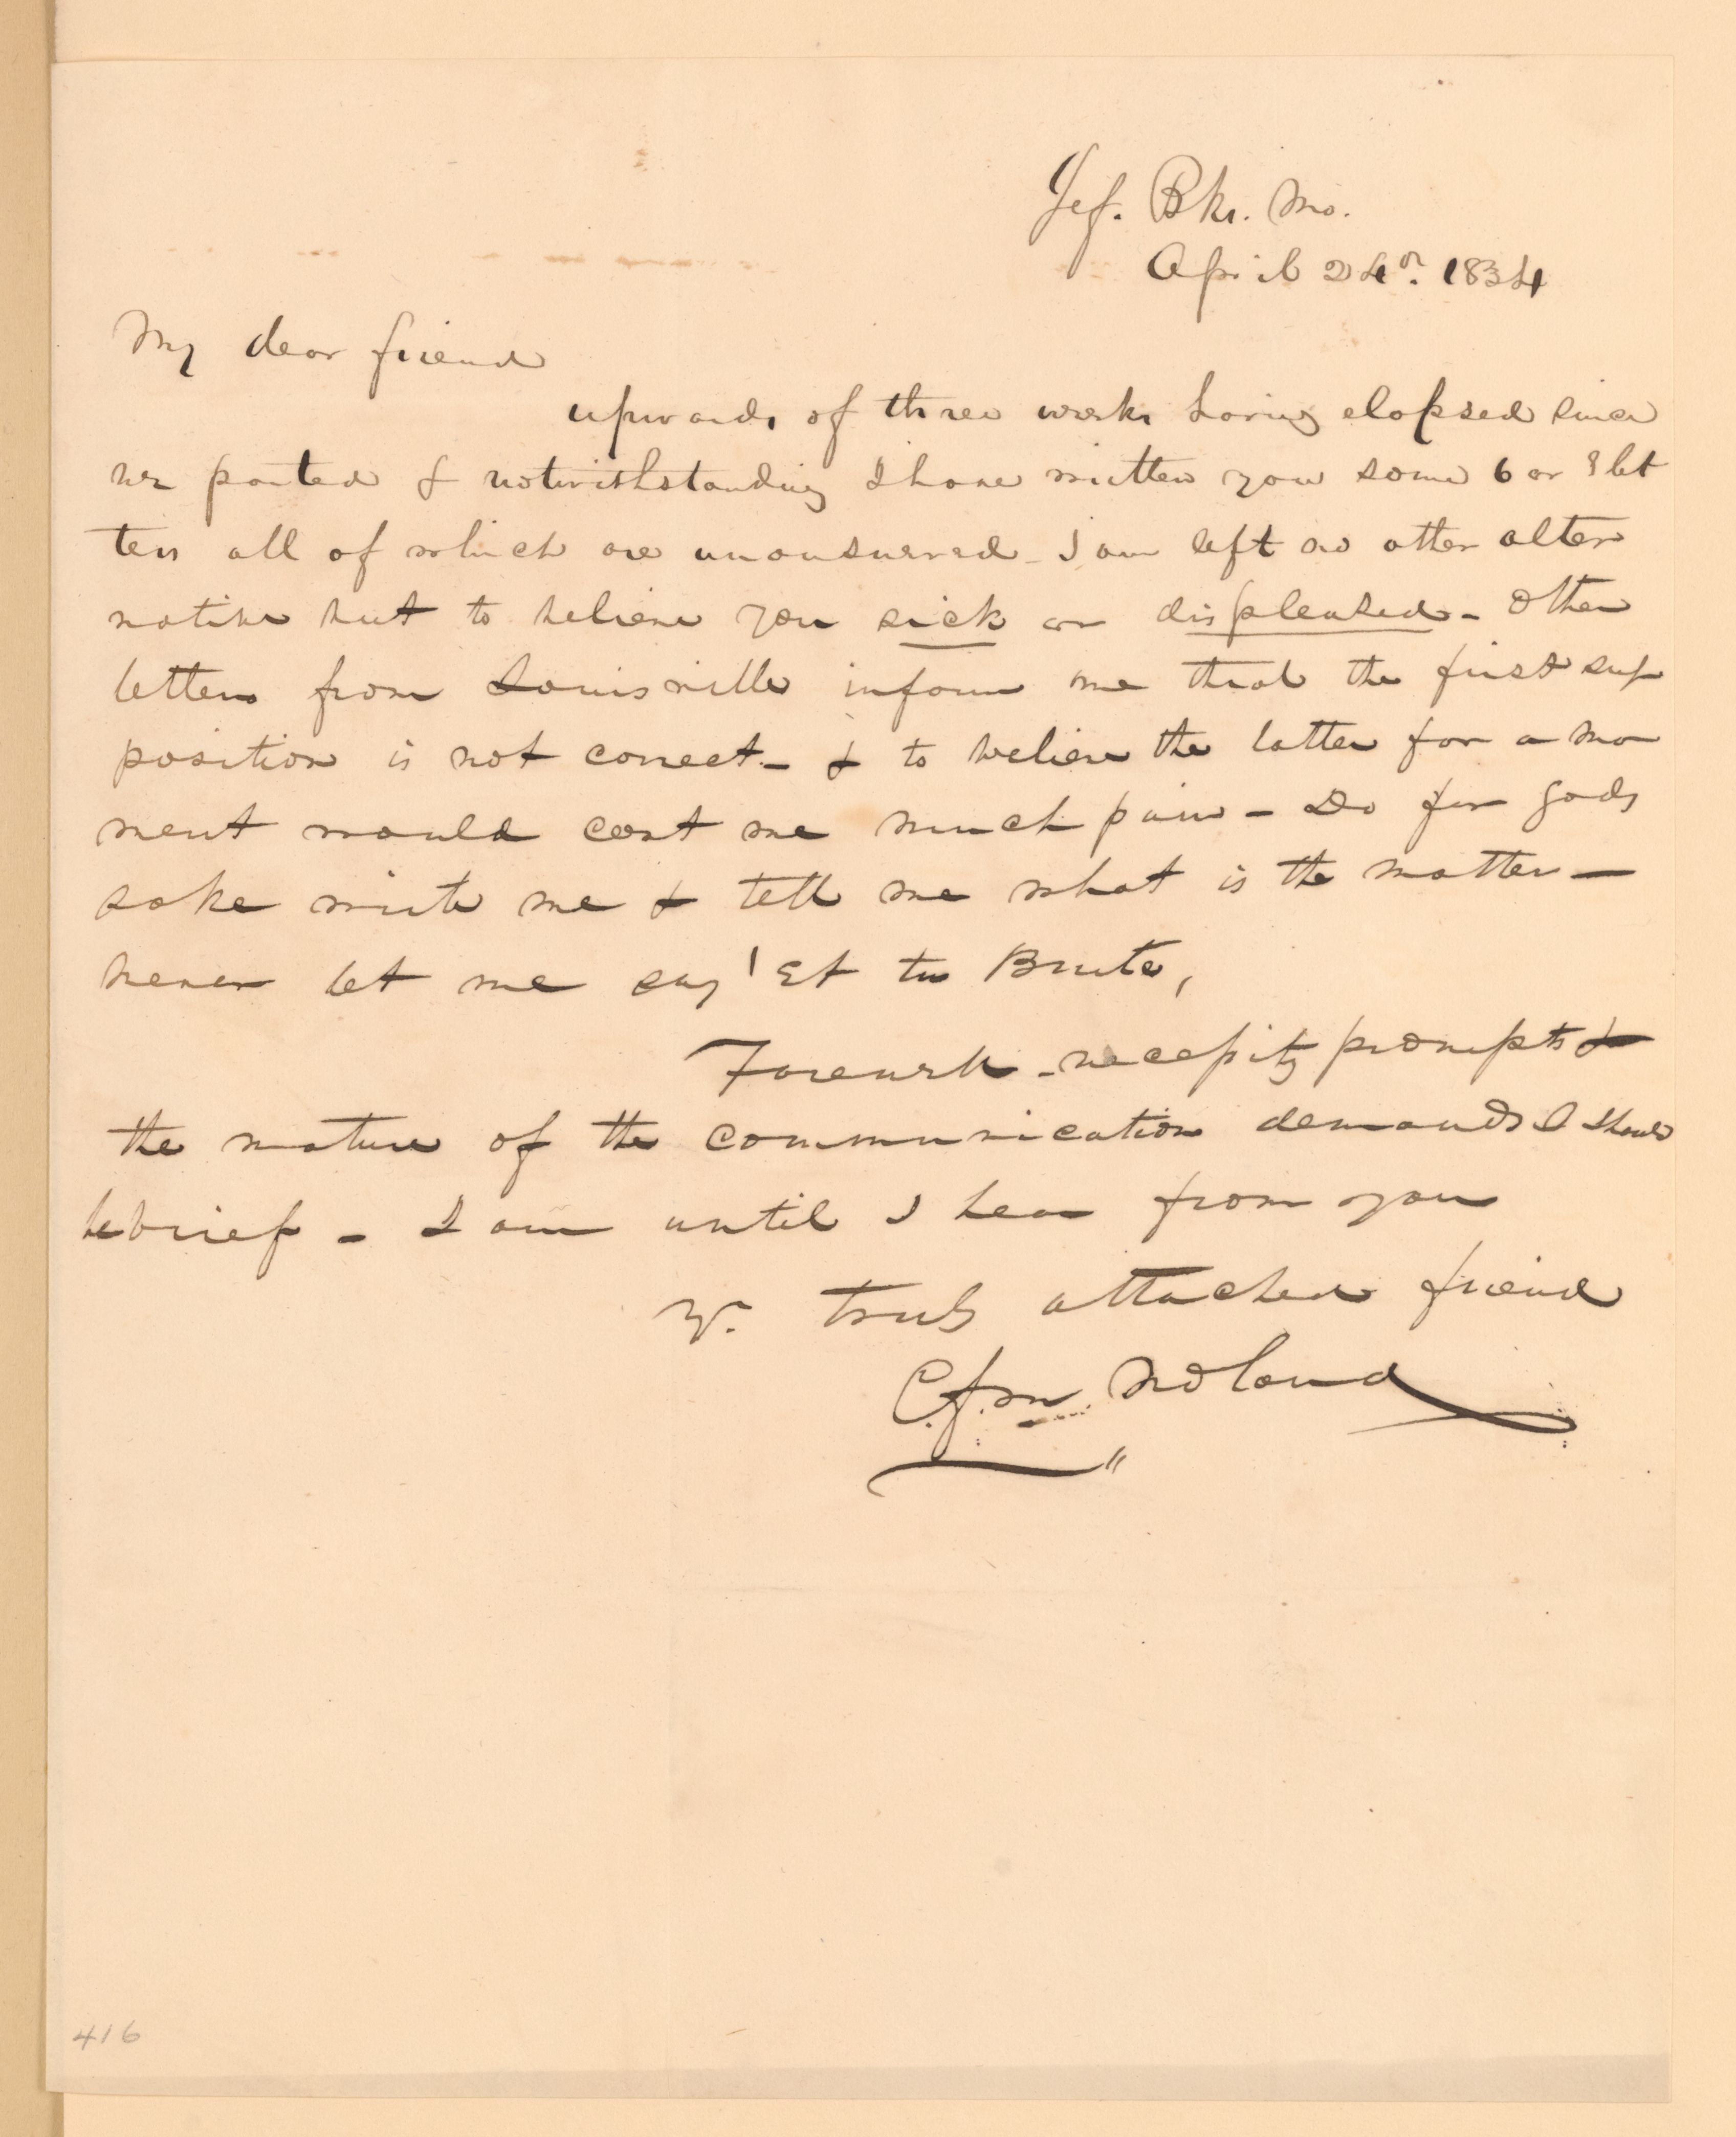 Jef. Bks. Mo.
April 24th. 1834
My dear friend
upwards of three weeks having elapsed since
we parted & notwithstanding I have written you some 6 or 8 let
ters all of which are unanswered - I am left no other alter
native but to believe you sick or displeased - Other
letters from Louisville inform me that the first sup
position is not correct - & to believe the latter for a mo
ment would cost me much pain - Do for gods
sake write me & tell me what is the matter -
never let me say 'Et tu Brute,
Farewell - necessity prompts &
the nature of the communication demands I should
be brief - I am until I hear from you
yr. truly attached friend
C.f.m. Noland
416